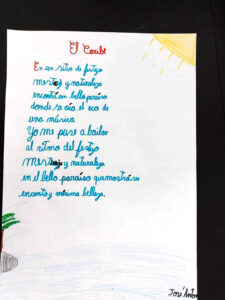 El Caribe
En un sitio de festejo
mestizo y naturaleza
encontré un bello paraíso
donde se oía el eco de
una música
Yo me puse a bailar
al ritmo del festejo
y naturaleza
en el bello paraíso que mostró su
encanto y máxima belleza.
José Anton